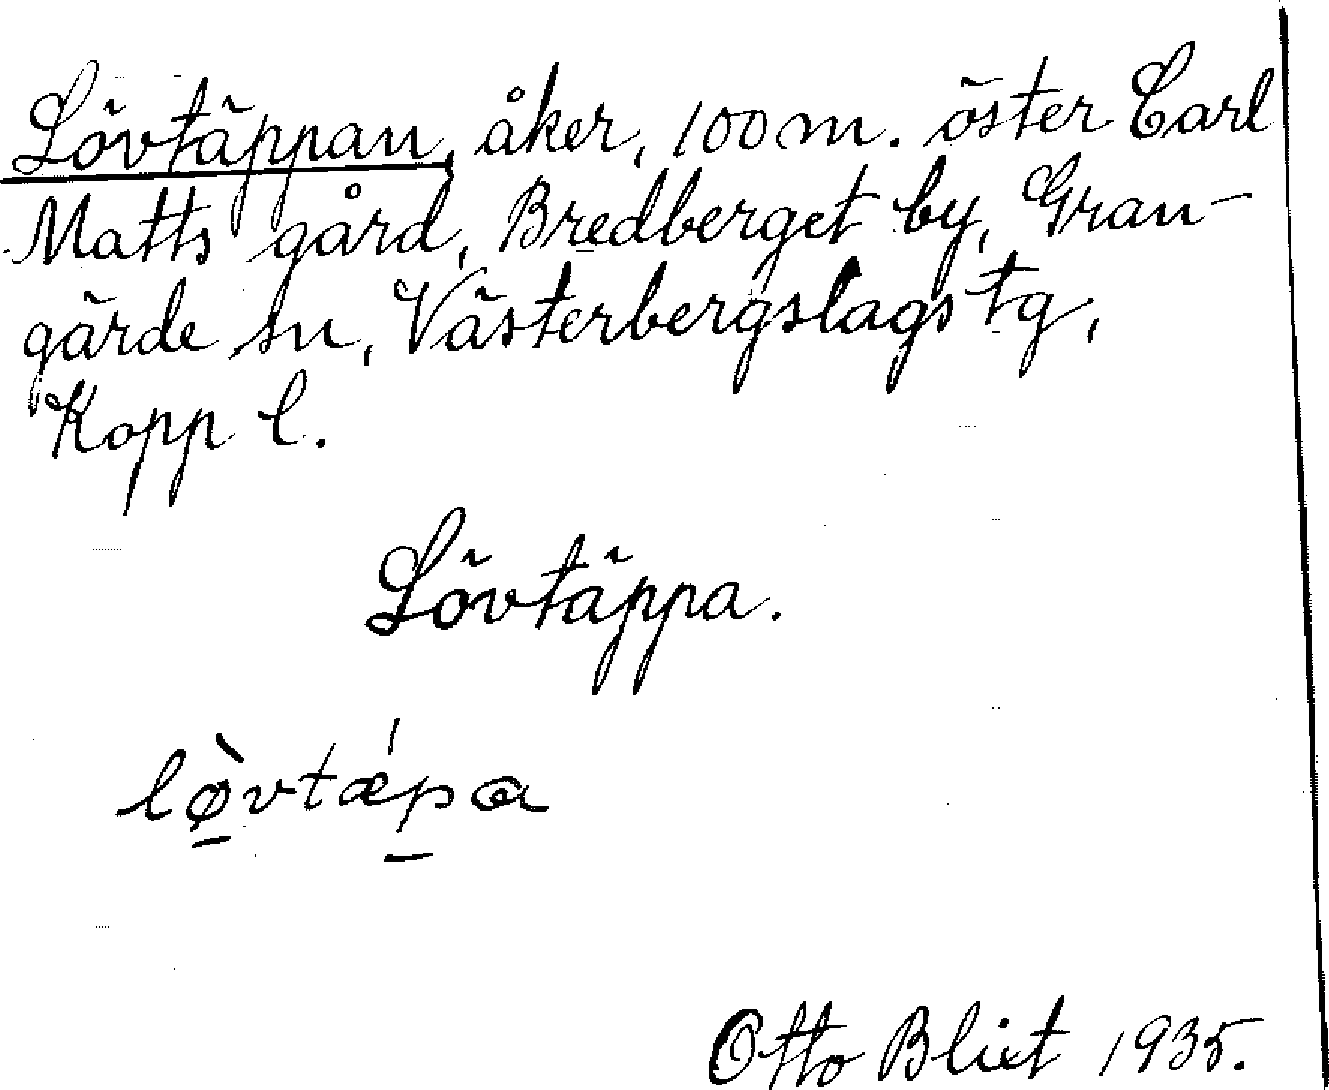 Lövtäppan, åker, 100 m. öster Carl
Matts gård, Bredberget by, Gran-
gärde sn, Västerbergslags tg,
Kopp l.
Lövtäppa.
lø̱̀vtǽp̱a
Otto Blixt 1935.